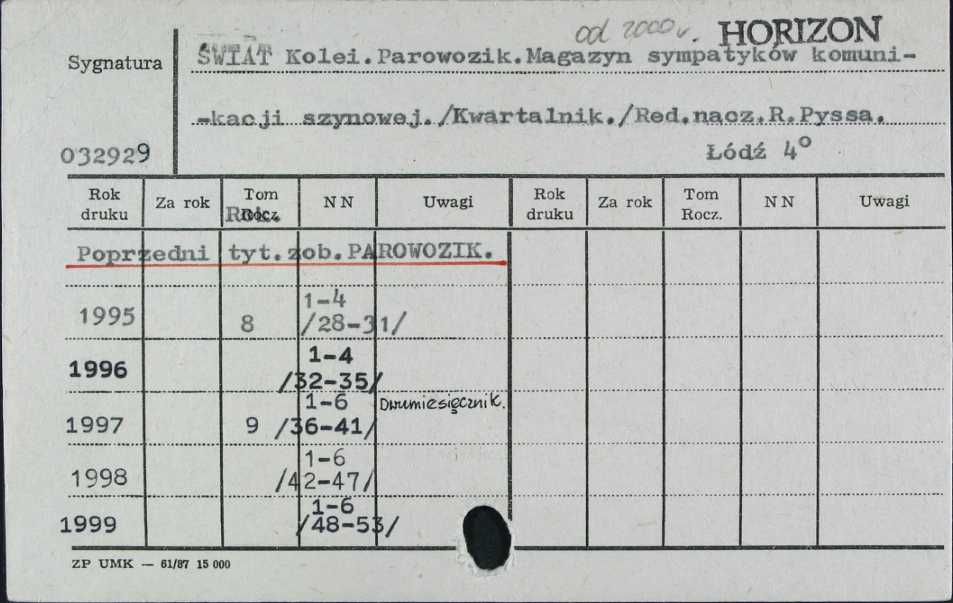 od 2000 r. HORIZON
Sygnatura
ŚWIAT Kolei.Parowozik.Magazyn sympatyków komuni-
-kacji szynowej./Kwartalnik./Red.nacz.R.Pyssa.
032929
Łódź 4°
Rok druku Za rok Tom Rocz. NN Uwagi Rok druku Za rok Tom Rocz. NN Uwagi
Rok.
Poprzedni tyt.zob.PAROWOZIK.
1995 8 1-4 /28-31/
1996 1-4 /32-35/
1997 9 1-6 /36-41/ Dwumiesięcznik.
1998 1-6 /42-47/
1999 1-6 /48-53/
ZP UMK — 61/87 15 000